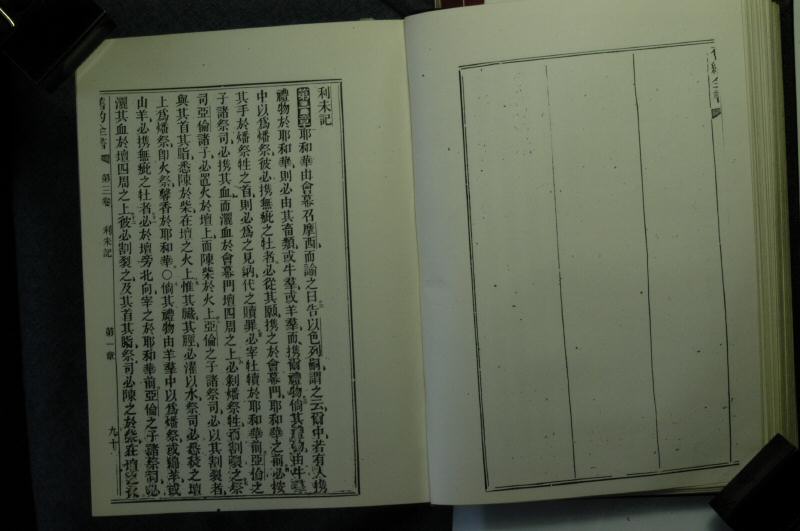 利未記
第壹章 耶和華由會幕召摩西而諭之曰告以色列嗣謂之云爾中若有人携
禮物於耶和華則必由其畜類或牛羣或羊羣而携爾禮物倘其禮物由牛羣
中以爲燔祭彼必携無疵之牡者必從其願携之於會幕門耶和華之前必按
其手於燔祭牲之首則必爲之見納代之贖罪必宰牡犢於耶和華前亞倫之
子諸祭司必携其血而灑血於會幕門壇四周之上必剝燔祭牲而割裂之祭
司亞倫諸子必置火於壇上而陳柴於火上亞倫之子諸祭司必以其割裂者
與其首其脂悉陳於柴在壇之火上惟其臟其脛必濯以水祭司必悉焚之壇
上爲燔祭卽火祭馨香於耶和華〇倘其禮物由羊羣中以爲燔祭或綿羊或
山羊必携無疵之牡者必於壇旁北向宰之於耶和華前亞倫之子諸祭司必
灑其血於壇四周之上彼必割裂之及其首其脂祭司必陳之於柴在壇之火
舊約全書 第三卷 利未記 第一章 九十
舊約全書